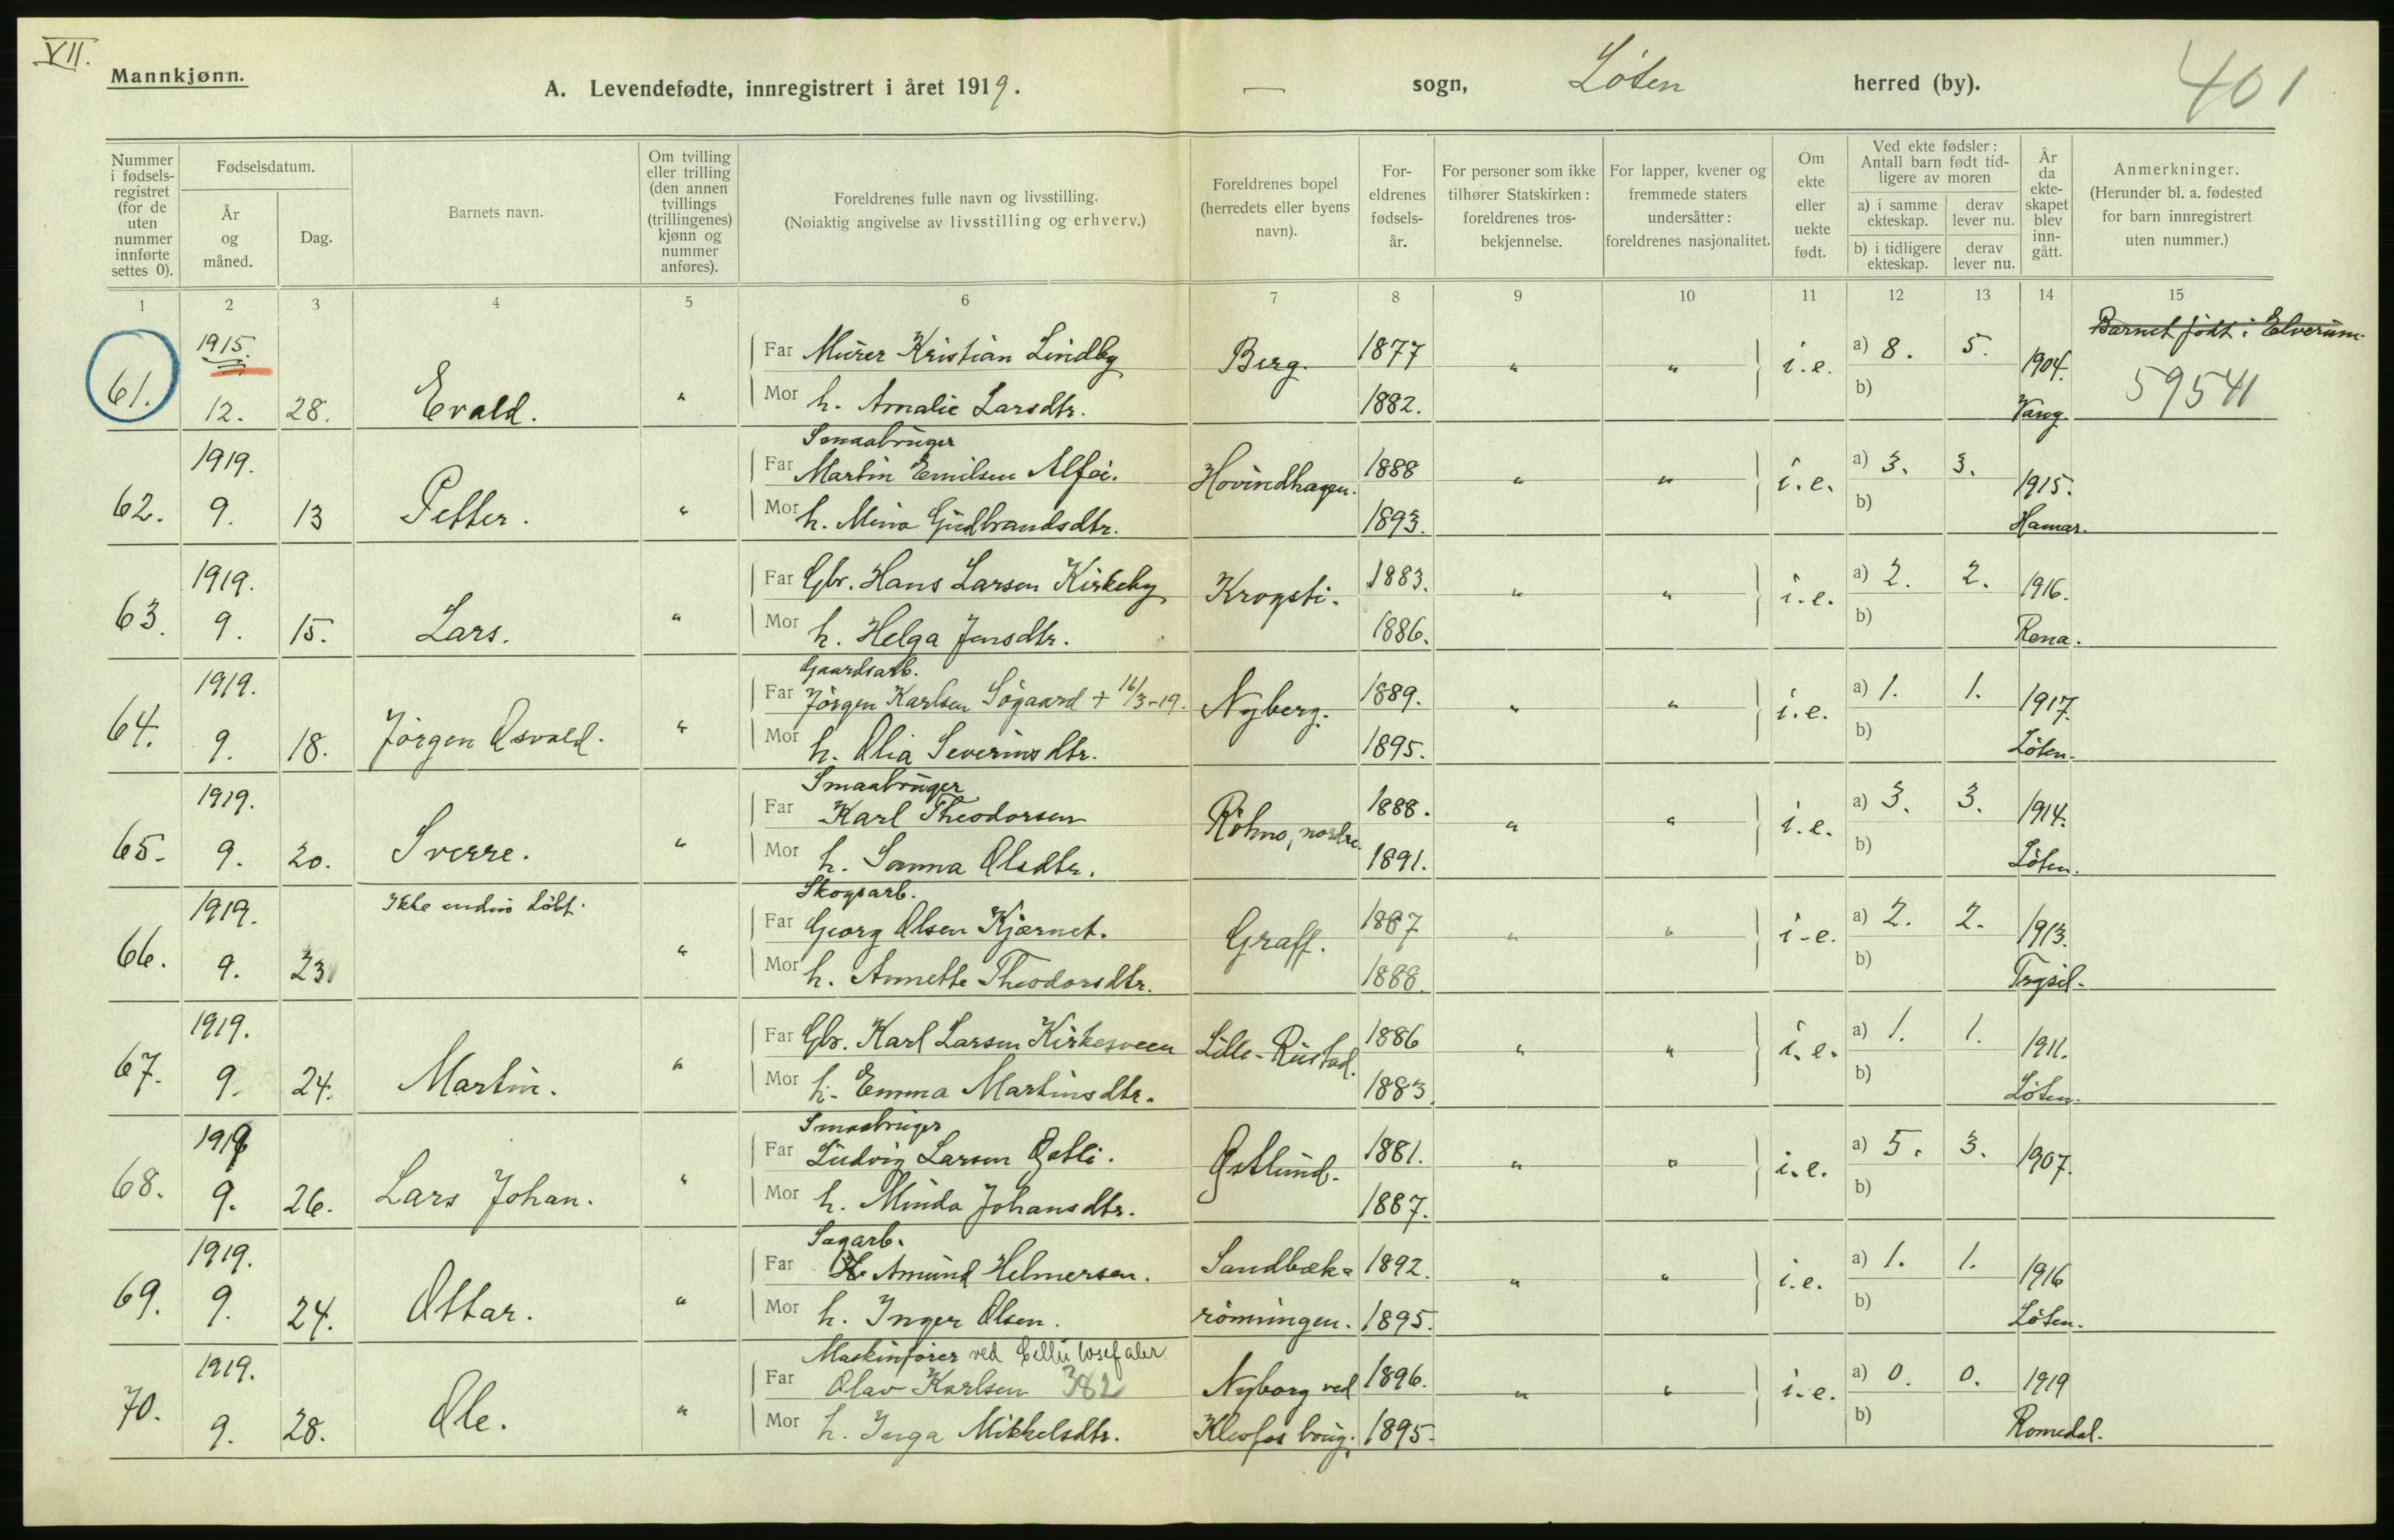 VII.
Mannkjønn.
A. Levendefødte, innregistrert i året 1919.
— sogn, Løten herred (by).
401
Nummer i fødselsregistret (for de uten nummer innførte settes 0).
Fødselsdatum.
År og måned.
Dag.
Barnets navn.
Om tvilling eller trilling (den annen tvillings (trillingenes) kjønn og nummer anføres).
Foreldrenes fulle navn og livsstilling.
(Nøiaktig angivelse av livsstilling og erhverv.)
Foreldrenes bopel (herredets eller byens navn).
Foreldrenes fødselsår.
For personer som ikke tilhører Statskirken: foreldrenes trosbekjennelse.
For lapper, kvener og fremmede staters undersåtter: foreldrenes nasjonalitet.
Om ekte eller uekte født.
Ved ekte fødsler: Antall barn født tidligere av moren
a) i samme ekteskap.
derav lever nu.
b) i tidligere ekteskap.
derav lever nu.
År da ekteskapet blev inngått.
Anmerkninger.
(Herunder bl. a. fødested for barn innregistrert uten nummer.)
1 2 3 4 5 6 7 8 9 10 11 12 13 14 15
61. 1915. 12. 28. Evald. "
Far Murer Kristian Lindby Berg. 1877 " " i.e. a) 8. 5. 1904. Barnet født i Elverum.
Mor h. Amalie Larsdtr. 1882. b) Vang. 59541
62. 1919. 9. 13 Petter. "
Smaabruger
Far Martin Emilsen Alfoi. Hovindhagen. 1888 " " i.e. a) 3. 3. 1915.
Mor h. Mina Gudbrandsdtr. 1893. b) Hamar.
63. 1919. 9. 15. Lars. "
Far Gbr. Hans Larsen Kirkeby Krogsti. 1883. " " i.e. a) 2. 2. 1916.
Mor h. Helga Jensdtr. 1886. b) Rena.
64. 1919. 9. 18. Jörgen Osvald. "
Gaardsarb.
Far Jörgen Karlsen Sögaard + 16/3-19. Nyberg. 1889. " " i.e. a) 1. 1. 1917.
Mor h. Olia Severinsdtr. 1895. b) Löten.
65. 1919. 9. 20. Sverre. "
Smaabruger
Far Karl Theodorsen Röhne, nordre. 1888. " " i.e. a) 3. 3. 1914.
Mor h. Sanna Olsdtr. 1891. b) Löten.
66. 1919. 9. 23 Ikke endnu döbt. "
Skogsarb.
Far Georg Olsen Kjærnet. Graff. 1887 " " i.e. a) 2. 2. 1913.
Mor h. Annette Theodorsdtr. 1888. b) Trysil.
67. 1919. 9. 24. Martin. "
Far Gbr. Karl Larsen Kirkesveen Lille-Rustad. 1886 " " i.e. a) 1. 1. 1911.
Mor h. Emma Martinsdtr. 1883. b) Löten.
68. 1919 9. 26. Lars Johan. "
Smaabruger
Far Ludvig Larsen Østli. Østlund. 1881. " " i.e. a) 5. 3. 1907.
Mor h. Minda Johansdtr. 1887. b)
69. 1919. 9. 24. Ottar. "
Sagarb.
Far Amund Helmersen. Sandbæk- 1892. " " i.e. a) 1. 1. 1916
Mor h. Inger Olsen. römningen. 1895. b) Löten.
70. 1919. 9. 28. Ole. "
Maskinfører ved Cellulosefaber
Far Olav Karlsen 382 Nyborg ved 1896. " " i.e. a) 0. 0. 1919
Mor h. Inga Mikkelsdtr. Klevfos brug. 1895. b) Romedal.